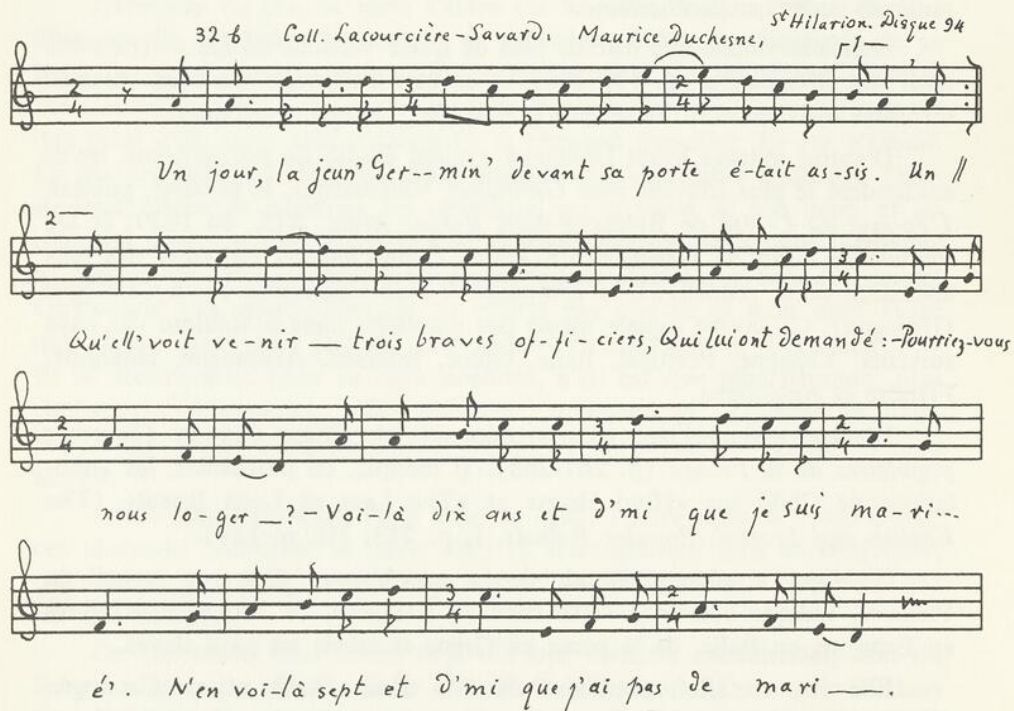 32 b Coll. Lacourcière-Savard. Maurice Duchesne, St Hilarion. Disque 94
1
2 4 3 4 2 4
Un jour, la jeun' Ger--min' devant sa porte é-tait as-sis. Un //
2
3 4
Qu'ell' voit ve-nir — trois braves of-fi-ciers, Qui lui ont demandé :-Pourriez-vous
2 4 3 4 2 4
nous lo-ger —? - Voi-là dix ans et d'mi que je suis ma-ri--
3 4 2 4
é' N'en voi-là sept et d'mi que j'ai pas de mari —.